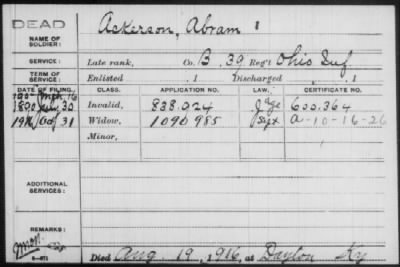 DEAD
NAME OF SOLDIER: Ackerson, Abram
SERVICE: Late rank, Co. B, 39 Reg't Ohio Inf.
TERM OF SERVICE: Enlisted , 1 Discharged , 1
DATE OF FILING. CLASS. APPLICATION NO. LAW. CERTIFICATE NO.
1890 July 30 Invalid, 838.024 600.364
1916 Oct 31 Widow, 1090985 Sept a-10-16-26
Minor,
ADDITIONAL SERVICES:
REMARKS:
Died Aug. 19, 1916, at Dayton Ky